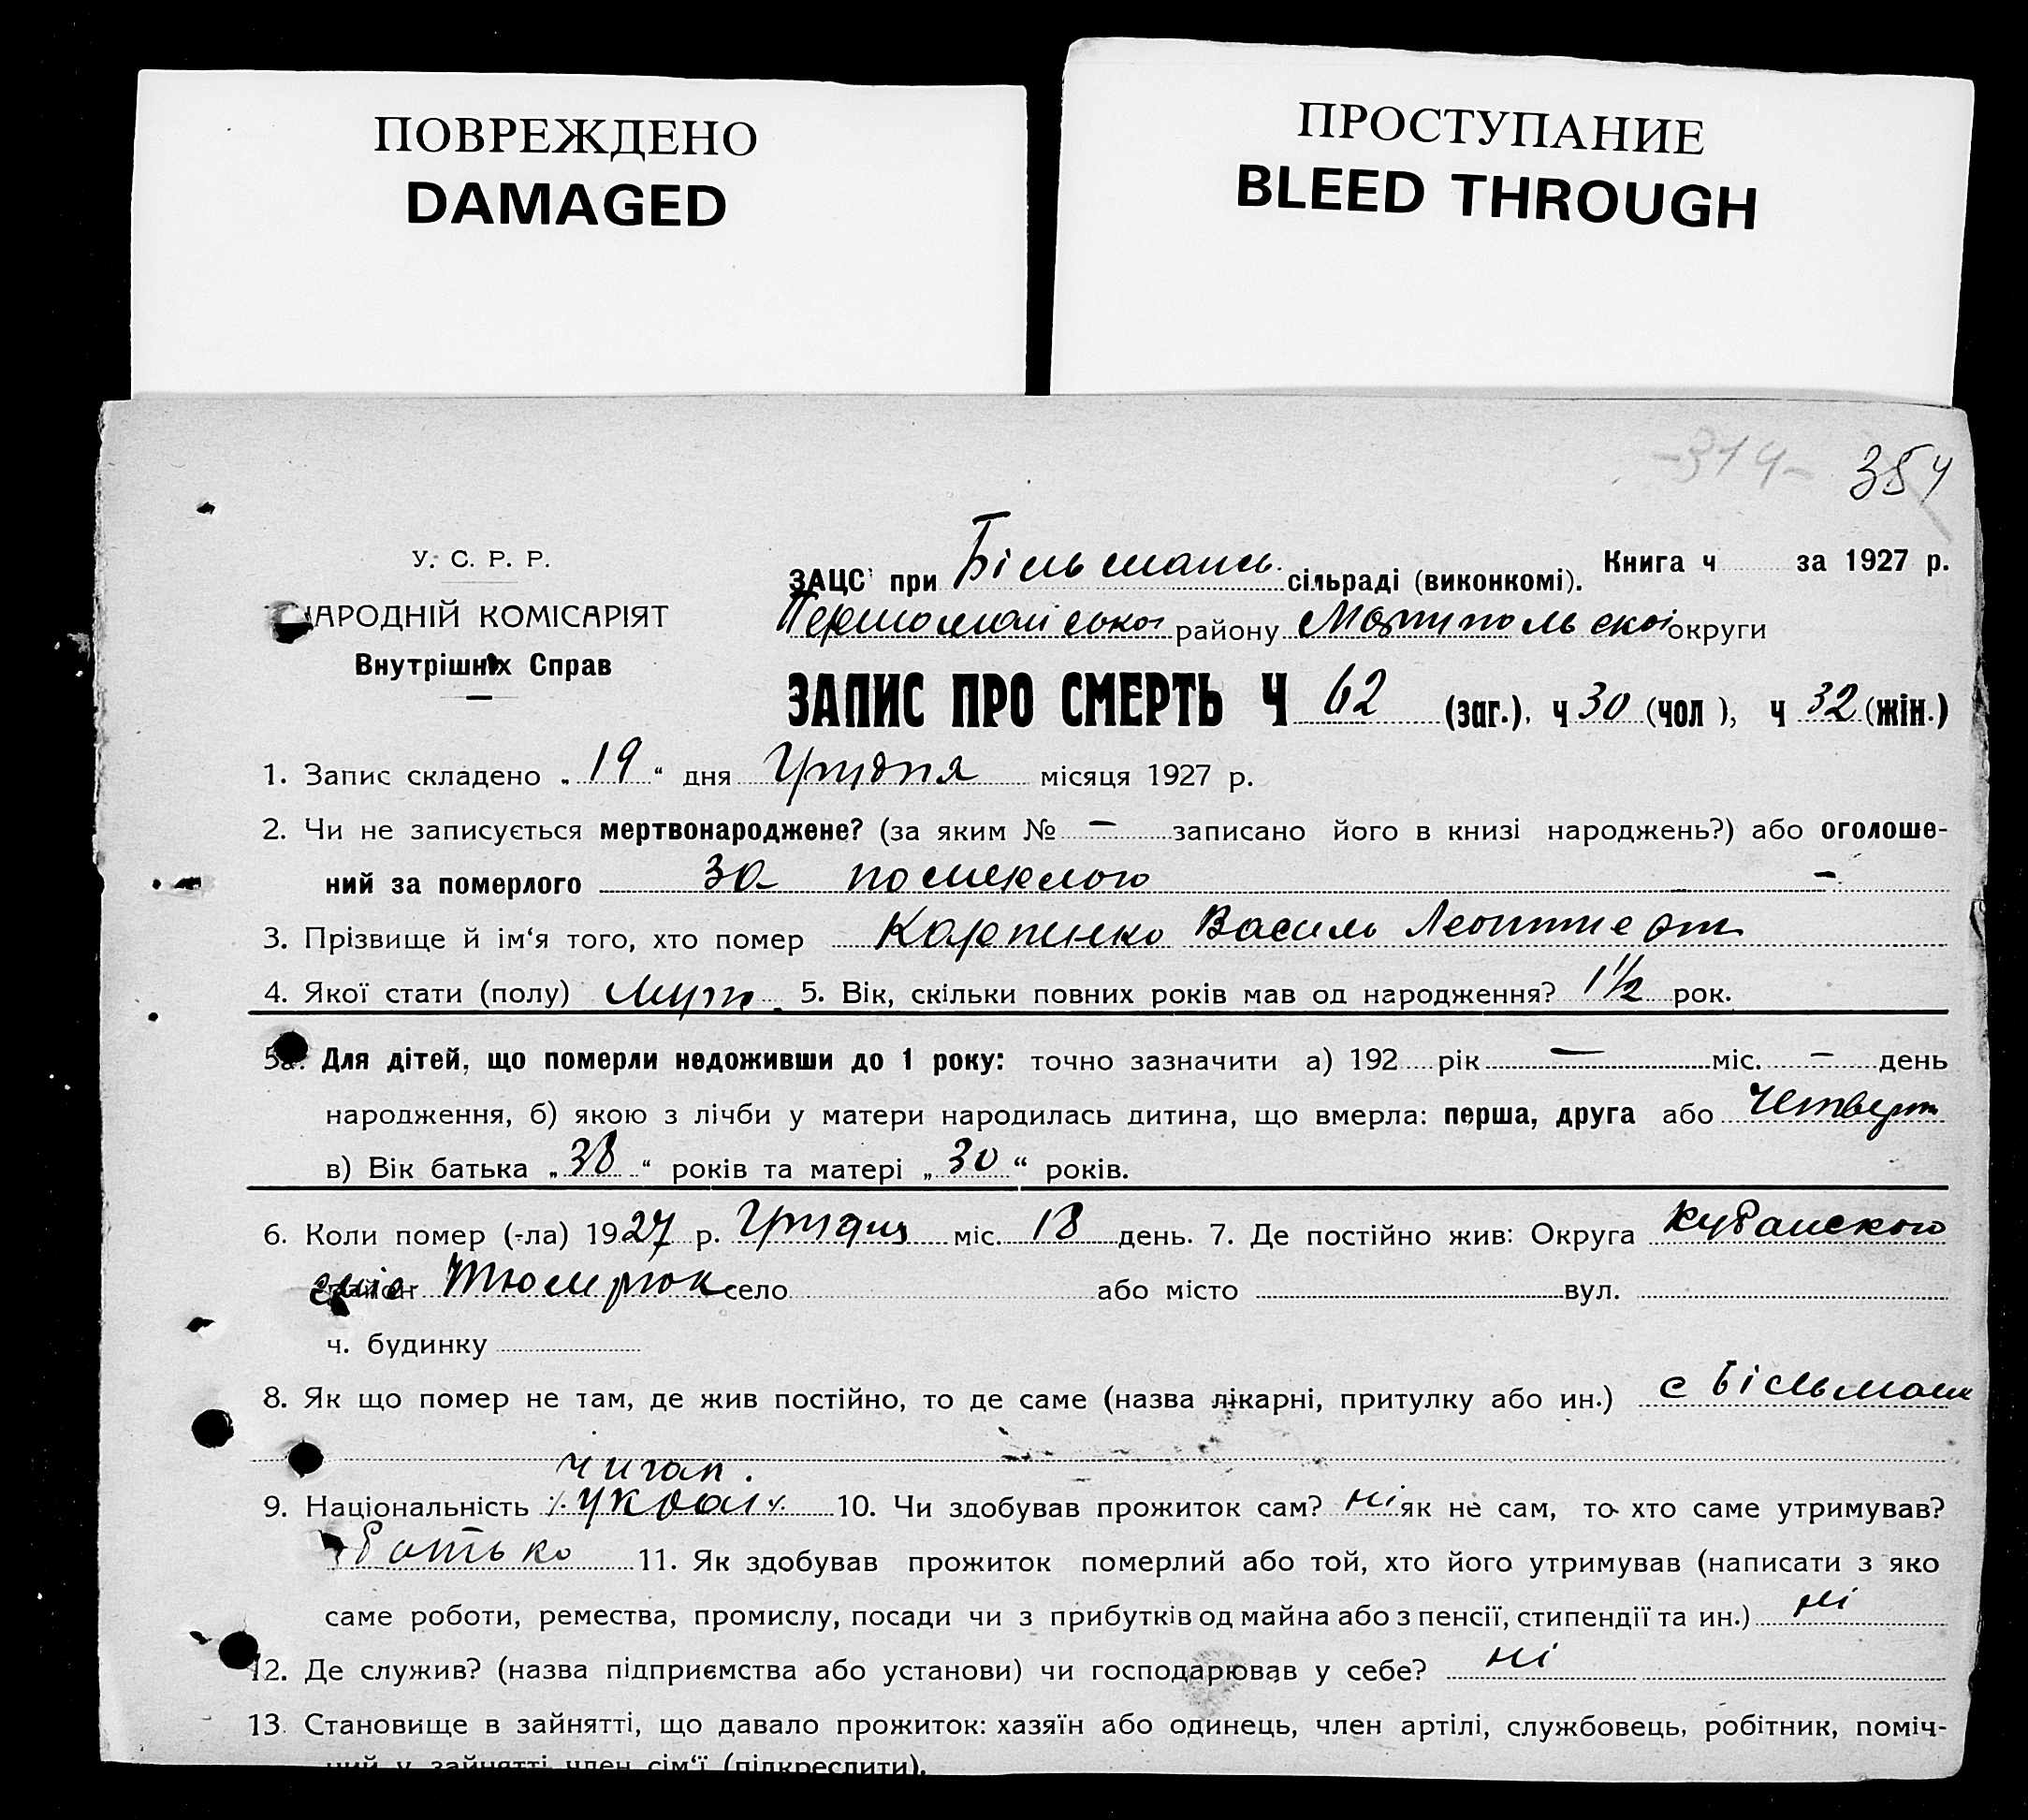 ПОВРЕЖДЕНО
DAMAGED
ПРОСТУПАНИЕ
BLEED THROUGH
-314- 354
У. С. Р. Р.
НАРОДНІЙ КОМІСАРІЯТ
Внутрішніх Справ
ЗАЦС при Більманськ. сільраді (виконкомі). Книга ч за 1927 р.
Першомайської району Маріпольскої округи
ЗАПИС ПРО СМЕРТЬ Ч 62 (заг.), ч 30 (чол ), ч 32 (жін.)
1. Запис складено „19“ дня Грудня місяця 1927 р.
2. Чи не записується мертвонароджене? (за яким № — записано його в книзі народжень?) або оголоше-
ний за померлого за померлого —
3. Прізвище й ім‘я того, хто помер Карпенко Василь Леонтиевт
4. Якої стати (полу) муж. 5. Вік, скільки повних років мав од народження? 1 1/2 рок.
5а. Для дітей, що померли недоживши до 1 року: точно зазначити а) 192 рік — міс. — день
народження, б) якою з лічби у матери народилась дитина, що вмерла: перша, друга або четверт
в) Вік батька „38“ років та матері „30“ років.
6. Коли помер (-ла) 1927 р. Грудня міс. 18 день. 7. Де постійно жив: Округа Кубанского
район Тюмрюк село або місто вул.
ч. будинку
8. Як що помер не там, де жив постійно, то де саме (назва лікарні, притулку або ин.) с Більманк
циган.
9. Національність укра 10. Чи здобував прожиток сам? ні як не сам, то хто саме утримував?
батько 11. Як здобував прожиток померлий або той, хто його утримував (написати з яко
саме роботи, ремества, промислу, посади чи з прибутків од майна або з пенсії, стипендії та ин.) ні
12. Де служив? (назва підприємства або установи) чи господарював у себе? ні
13. Становище в зайнятті, що давало прожиток: хазяїн або одинець, член артілі, службовець, робітник, поміч-
ний у зайнятті член сім‘ї (підкреслити).